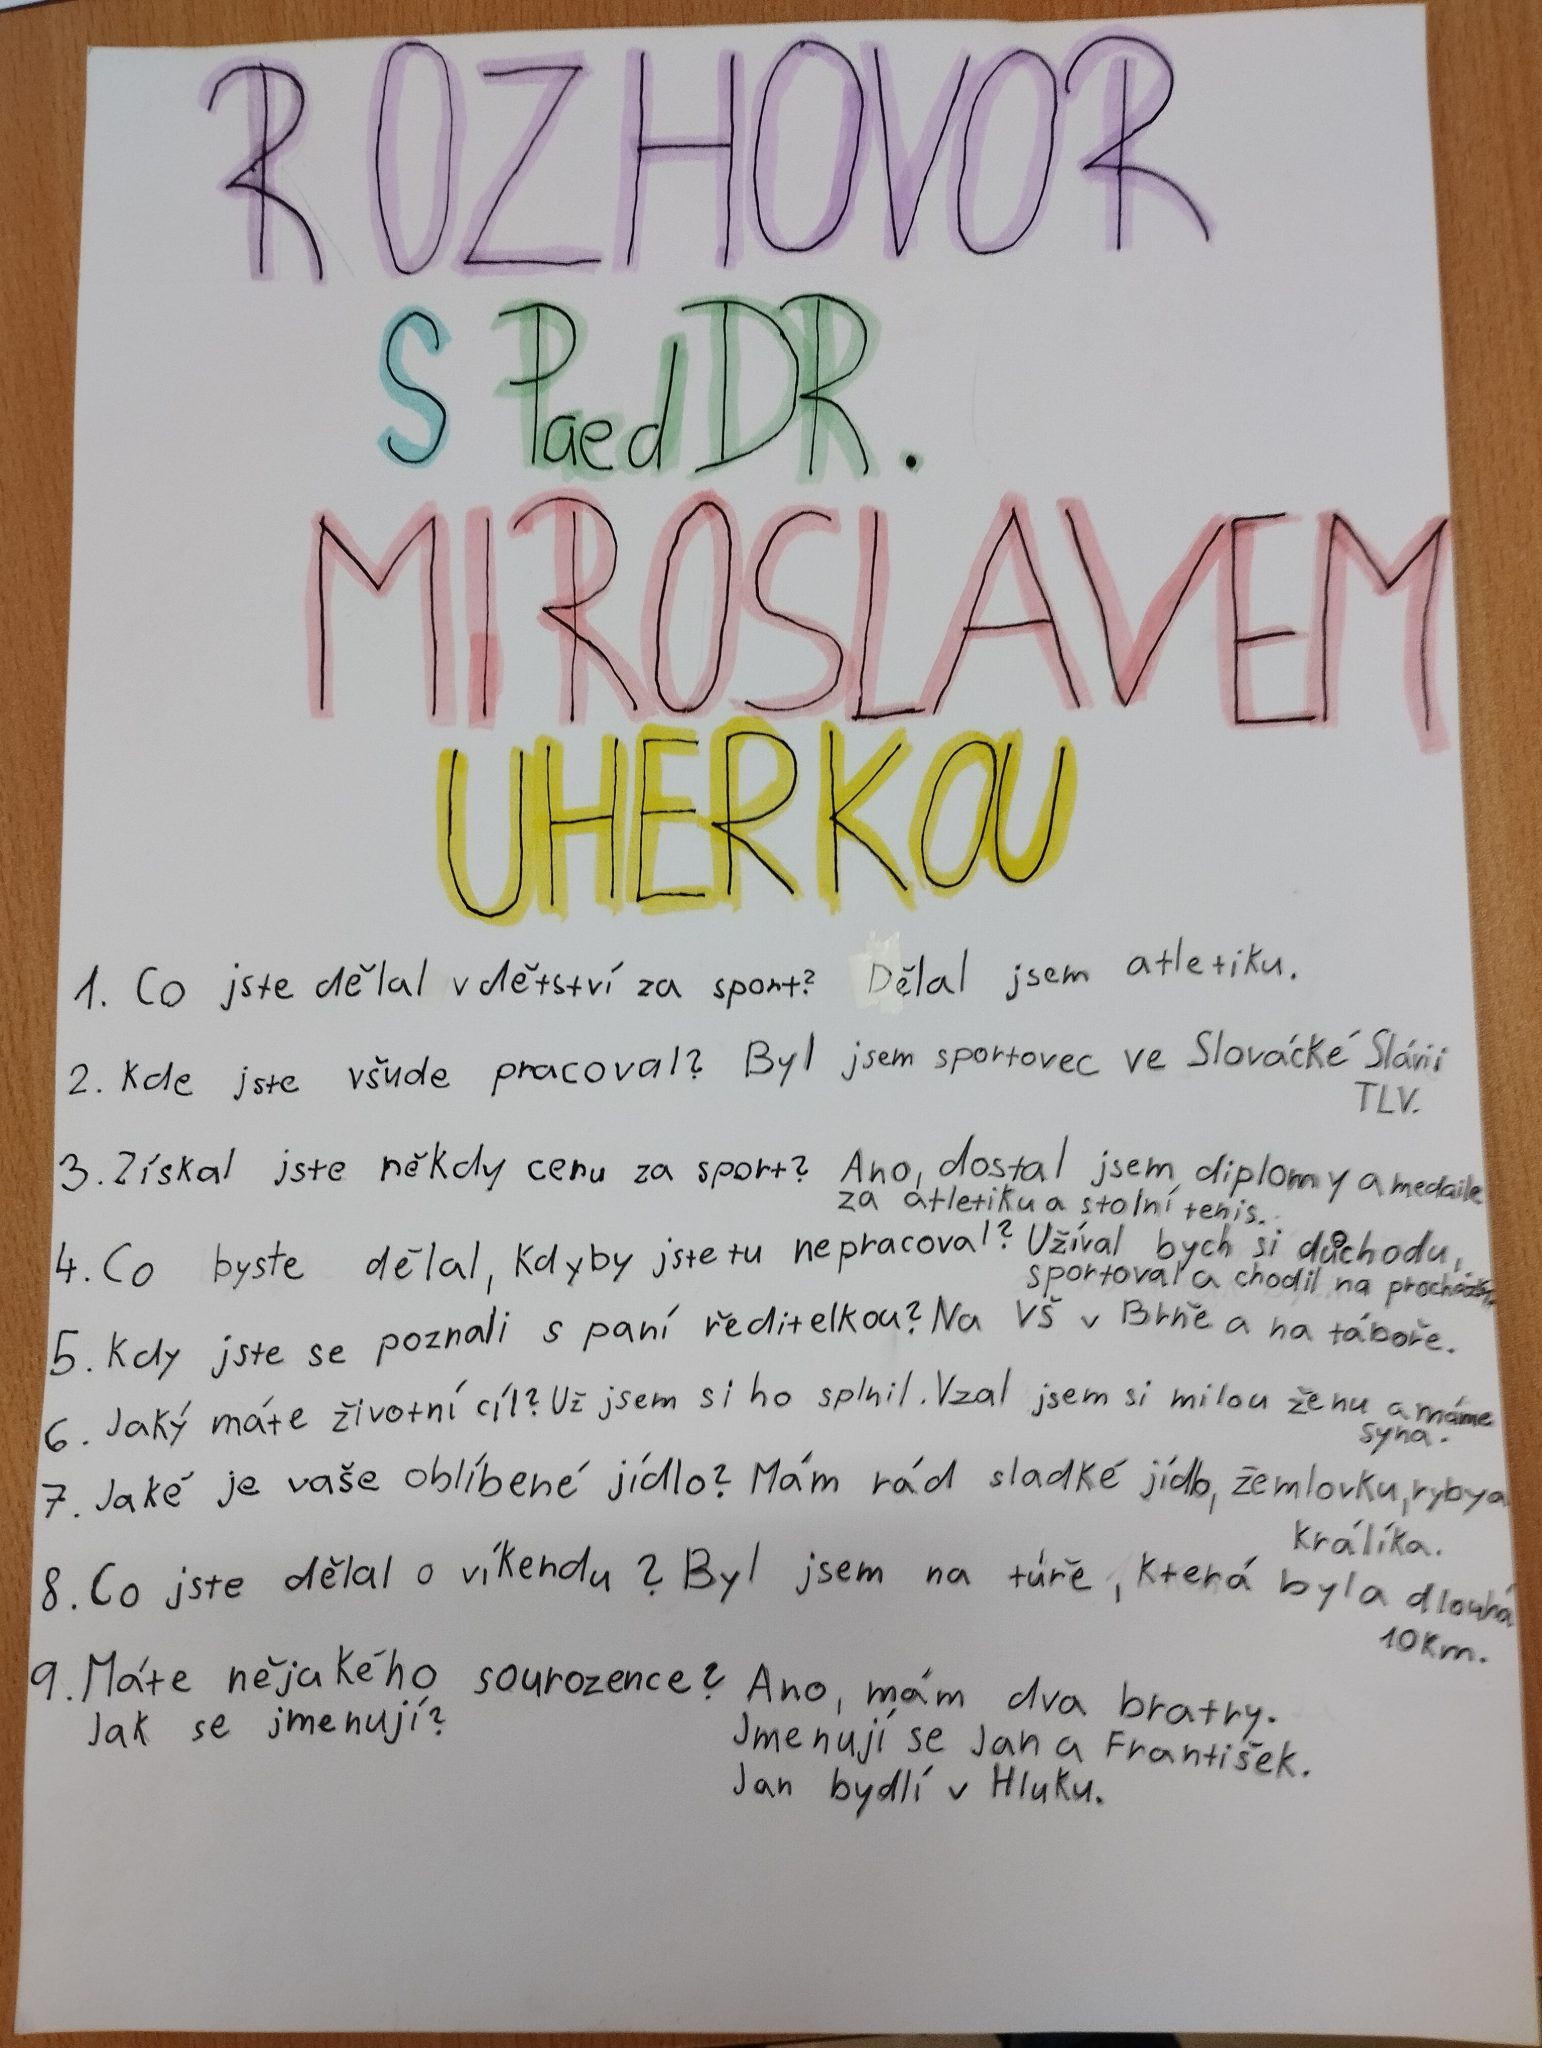 ROZHOVOR
S PaedDR.
MIROSLAVEM
UHERKOU
1. Co jste dělal v dětství za sport? Dělal jsem atletiku.
2. Kde jste všude pracoval? Byl jsem sportovec ve Slovácké Slávii
TLV.
3. Získal jste někdy cenu za sport? Ano, dostal jsem diplomy a medaile
za atletiku a stolní tenis.
4. Co byste dělal, kdyby jste tu nepracoval? Užíval bych si důchodu,
sportoval a chodil na
5. Kdy jste se poznali s paní ředitelkou? Na VŠ v Brně a na táboře.
6. Jaký máte životní cíl? Už jsem si ho splnil. Vzal jsem si milou ženu a máme
syna.
7. Jaké je vaše oblíbené jídlo? Mám rád sladké jídlo, žemlovku, ryby a
králíka.
8. Co jste dělal o víkendu? Byl jsem na túře, která byla dlouhá
10 km.
9. Máte nějakého sourozence? Ano, mám dva bratry.
Jak se jmenují? Jmenují se Jan a František.
Jan bydlí v Hluku.